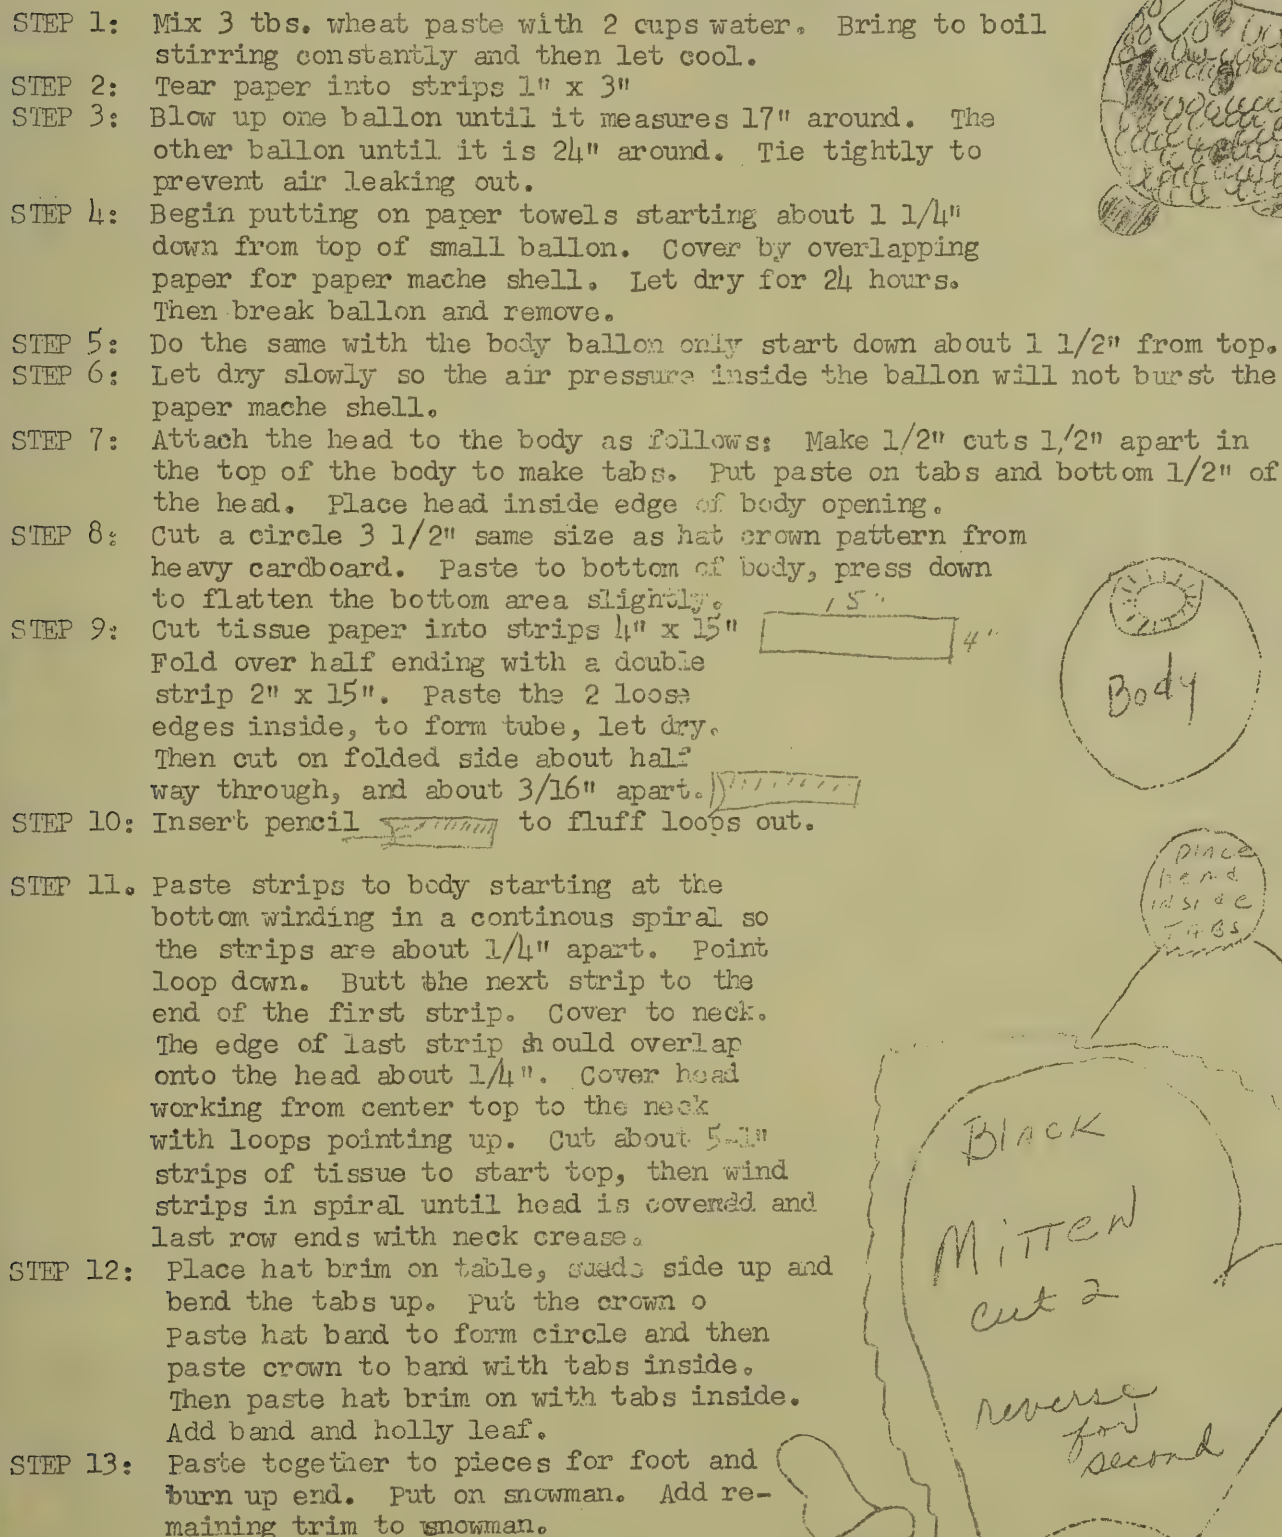 STEP 1: Mix 3 tbs. wheat paste with 2 cups water. Bring to boil
stirring constantly and then let cool.
STEP 2: Tear paper into strips 1" x 3"
STEP 3: Blow up one ballon until it measures 17" around. The
other ballon until it is 24" around. Tie tightly to
prevent air leaking out.
STEP 4: Begin putting on paper towels starting about 1 1/4"
down from top of small ballon. Cover by overlapping
paper for paper mache shell. Let dry for 24 hours.
Then break ballon and remove.
STEP 5: Do the same with the body ballon only start down about 1 1/2" from top.
STEP 6: Let dry slowly so the air pressure inside the ballon will not burst the
paper mache shell.
STEP 7: Attach the head to the body as follows: Make 1/2" cuts 1/2" apart in
the top of the body to make tabs. Put paste on tabs and bottom 1/2" of
the head. Place head inside edge of body opening.
STEP 8: Cut a circle 3 1/2" same size as hat crown pattern from
heavy cardboard. Paste to bottom of body, press down
to flatten the bottom area slightly.
STEP 9: Cut tissue paper into strips 4" x 15"
15"
4"
Fold over half ending with a double
strip 2" x 15". Paste the 2 loose
edges inside, to form tube, let dry.
Then cut on folded side about half
way through, and about 3/16" apart.
Body
STEP 10: Insert pencil to fluff loops out.
STEP 11. Paste strips to body starting at the
bottom winding in a continous spiral so
the strips are about 1/4" apart. Point
loop down. Butt the next strip to the
end of the first strip. Cover to neck.
The edge of last strip should overlap
onto the head about 1/4". Cover head
working from center top to the neck
with loops pointing up. Cut about 5-1"
strips of tissue to start top, then wind
strips in spiral until head is coverdd and
last row ends with neck crease.
Place
head
inside
TABS
STEP 12: Place hat brim on table, suede side up and
bend the tabs up. Put the crown o
Paste hat band to form circle and then
paste crown to band with tabs inside.
Then paste hat brim on with tabs inside.
Add band and holly leaf.
STEP 13: Paste together to pieces for foot and
burn up end. Put on snowman. Add re-
maining trim to snowman.
Black
Mitten
cut 2
reverse
for
second